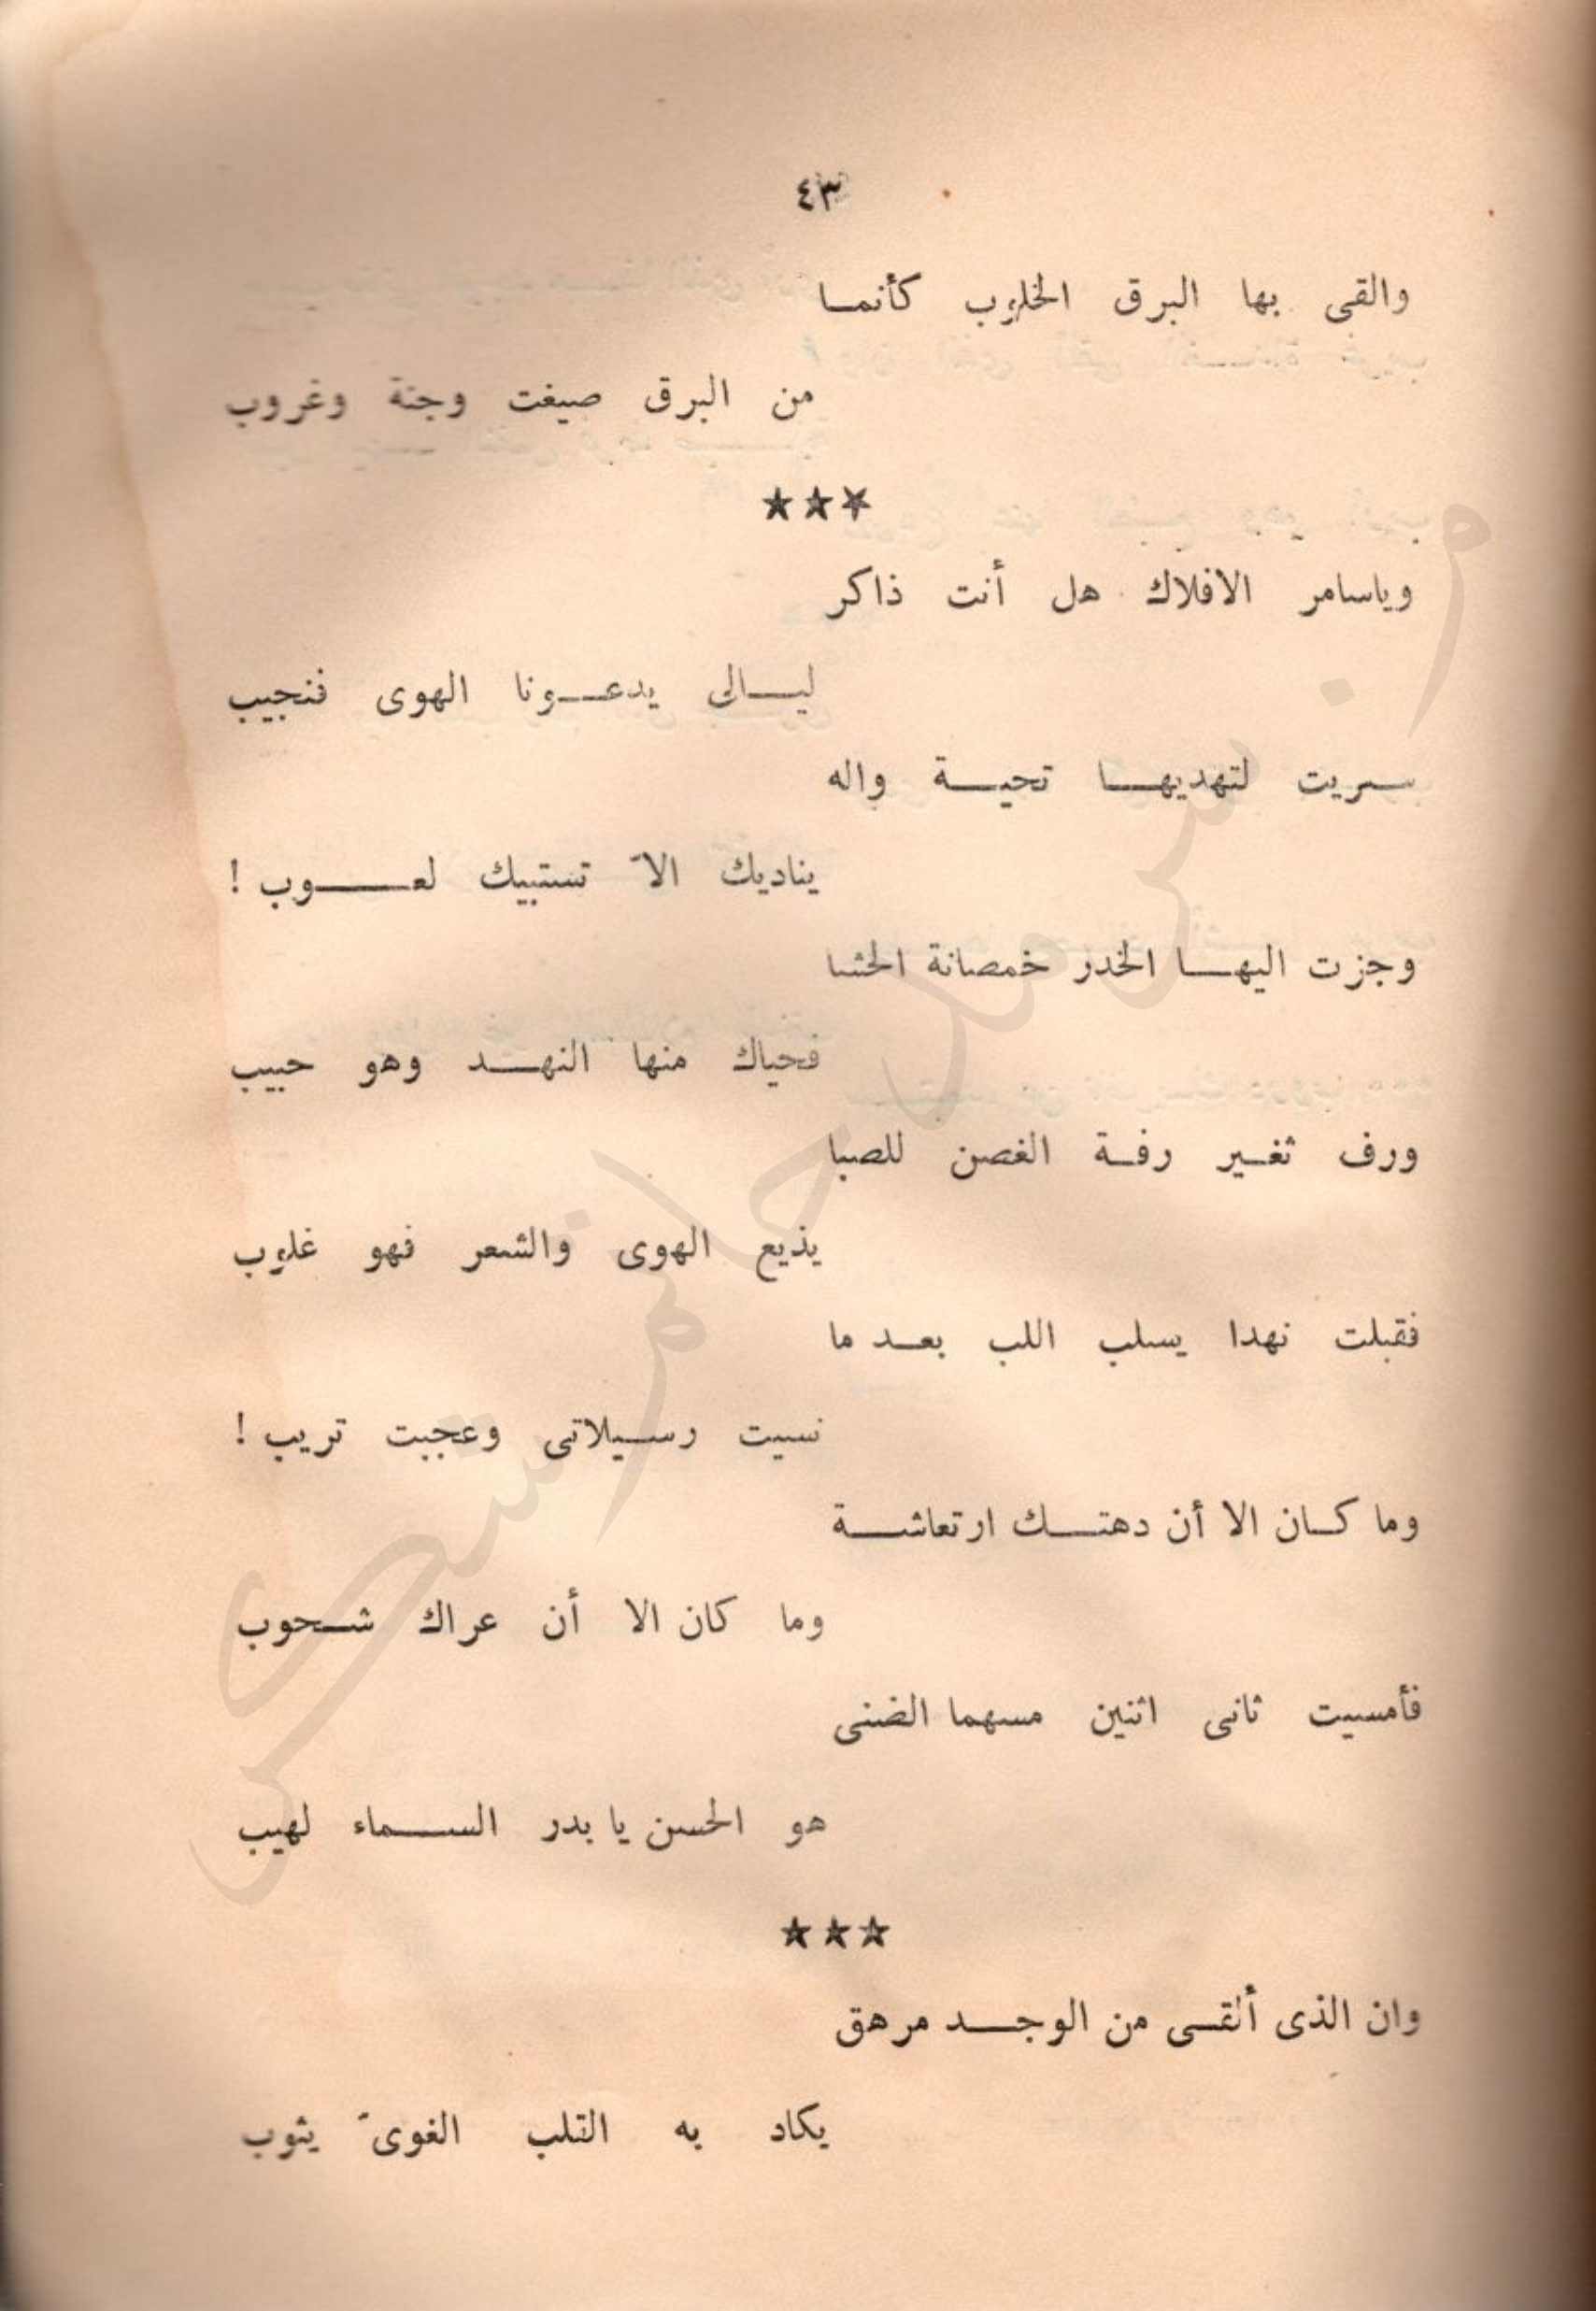 ٤٣
والقى بها البرق الخلوب كأنما
من البرق صيغت وجنة وغروب
★★★
وياسامر الافلاك هل أنت ذاكر
ليالى يدعونا الهوى فنجيب
سريت لتهديها تحية واله
يناديك الاّ تستبيك لعوب !
وجزت اليها الخدر خمصانة الحشا
فحياك منها النهد وهو حبيب
ورف ثغير رفة الغصن للصبا
يذيع الهوى والشعر فهو غلوب
فقبلت نهدا يسلب اللب بعد ما
نسيت رسيلاتى وعجبت تريب !
وما كان الا أن دهتك ارتعاشة
وما كان الا أن عراك شحوب
فأمسيت ثانى اثنين مسهما الضنى
هو الحسن يا بدر السماء لهيب
★★★
وان الذى ألقى من الوجد مرهق
يكاد به القلب الغوىّ يثوب